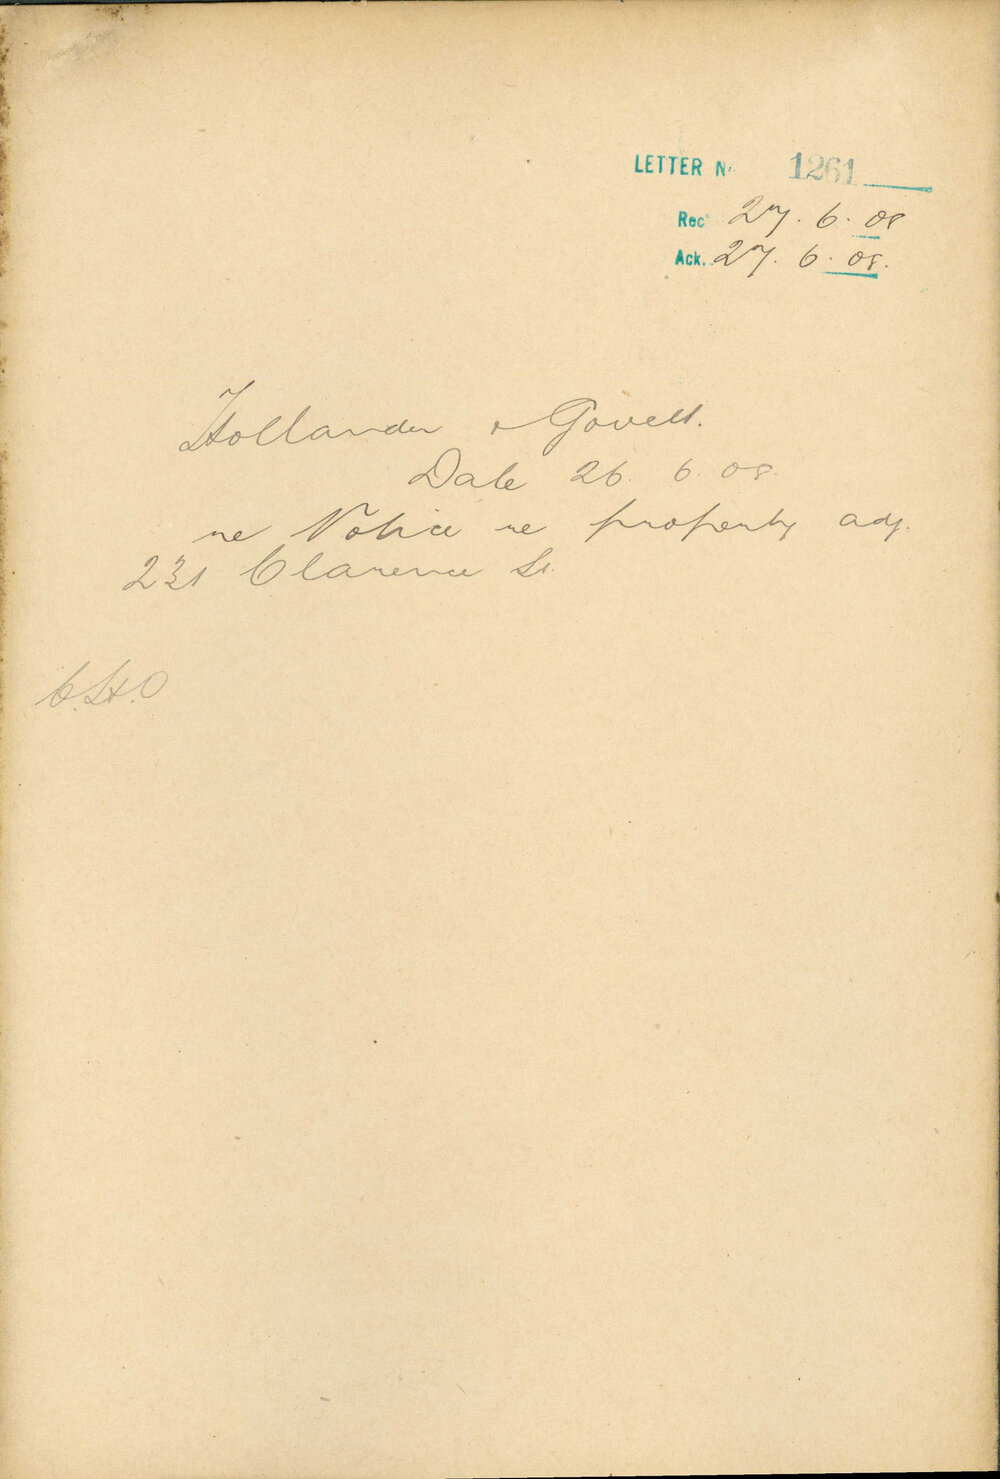 LETTER No. 1261
Recd 27. 6. 08
Ack. 27. 6. 08.
Hollander & Govett.
Date 26. 6. 08.
re Notice re property adj.
231 Clarence St.
C.H.O